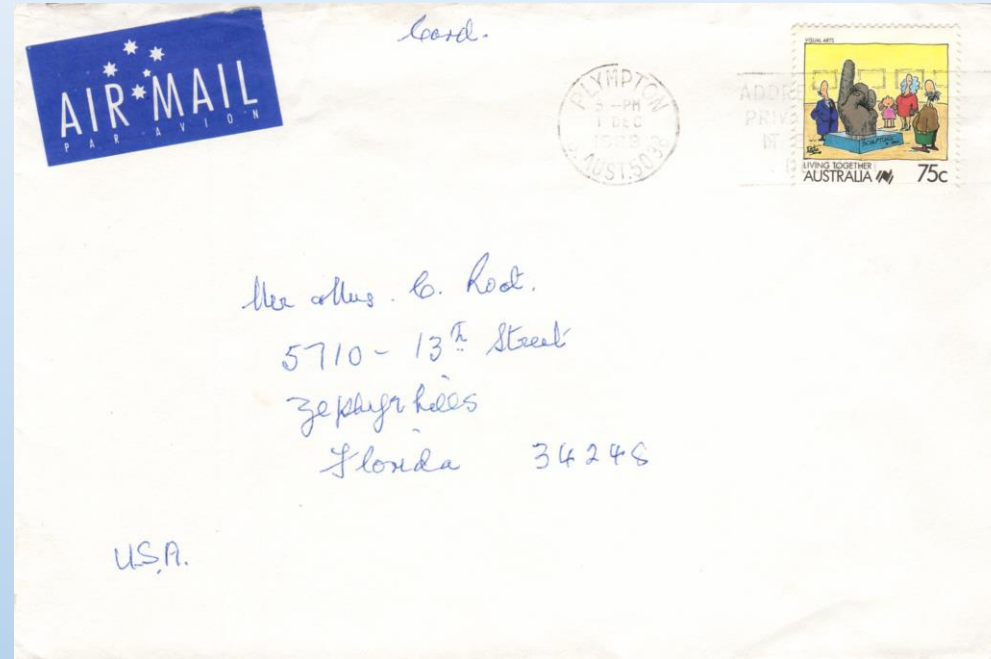 Card.
AIR MAIL
PAR AVION
PLYMPTON
5 -PM
1 DEC
AUST. 5038
VISUAL ARTS
LIVING TOGETHER
AUSTRALIA 75c
Mr & Mrs. C. Root.
5710 - 13th Street
Zephyrhills
Florida 34248
U.S.A.